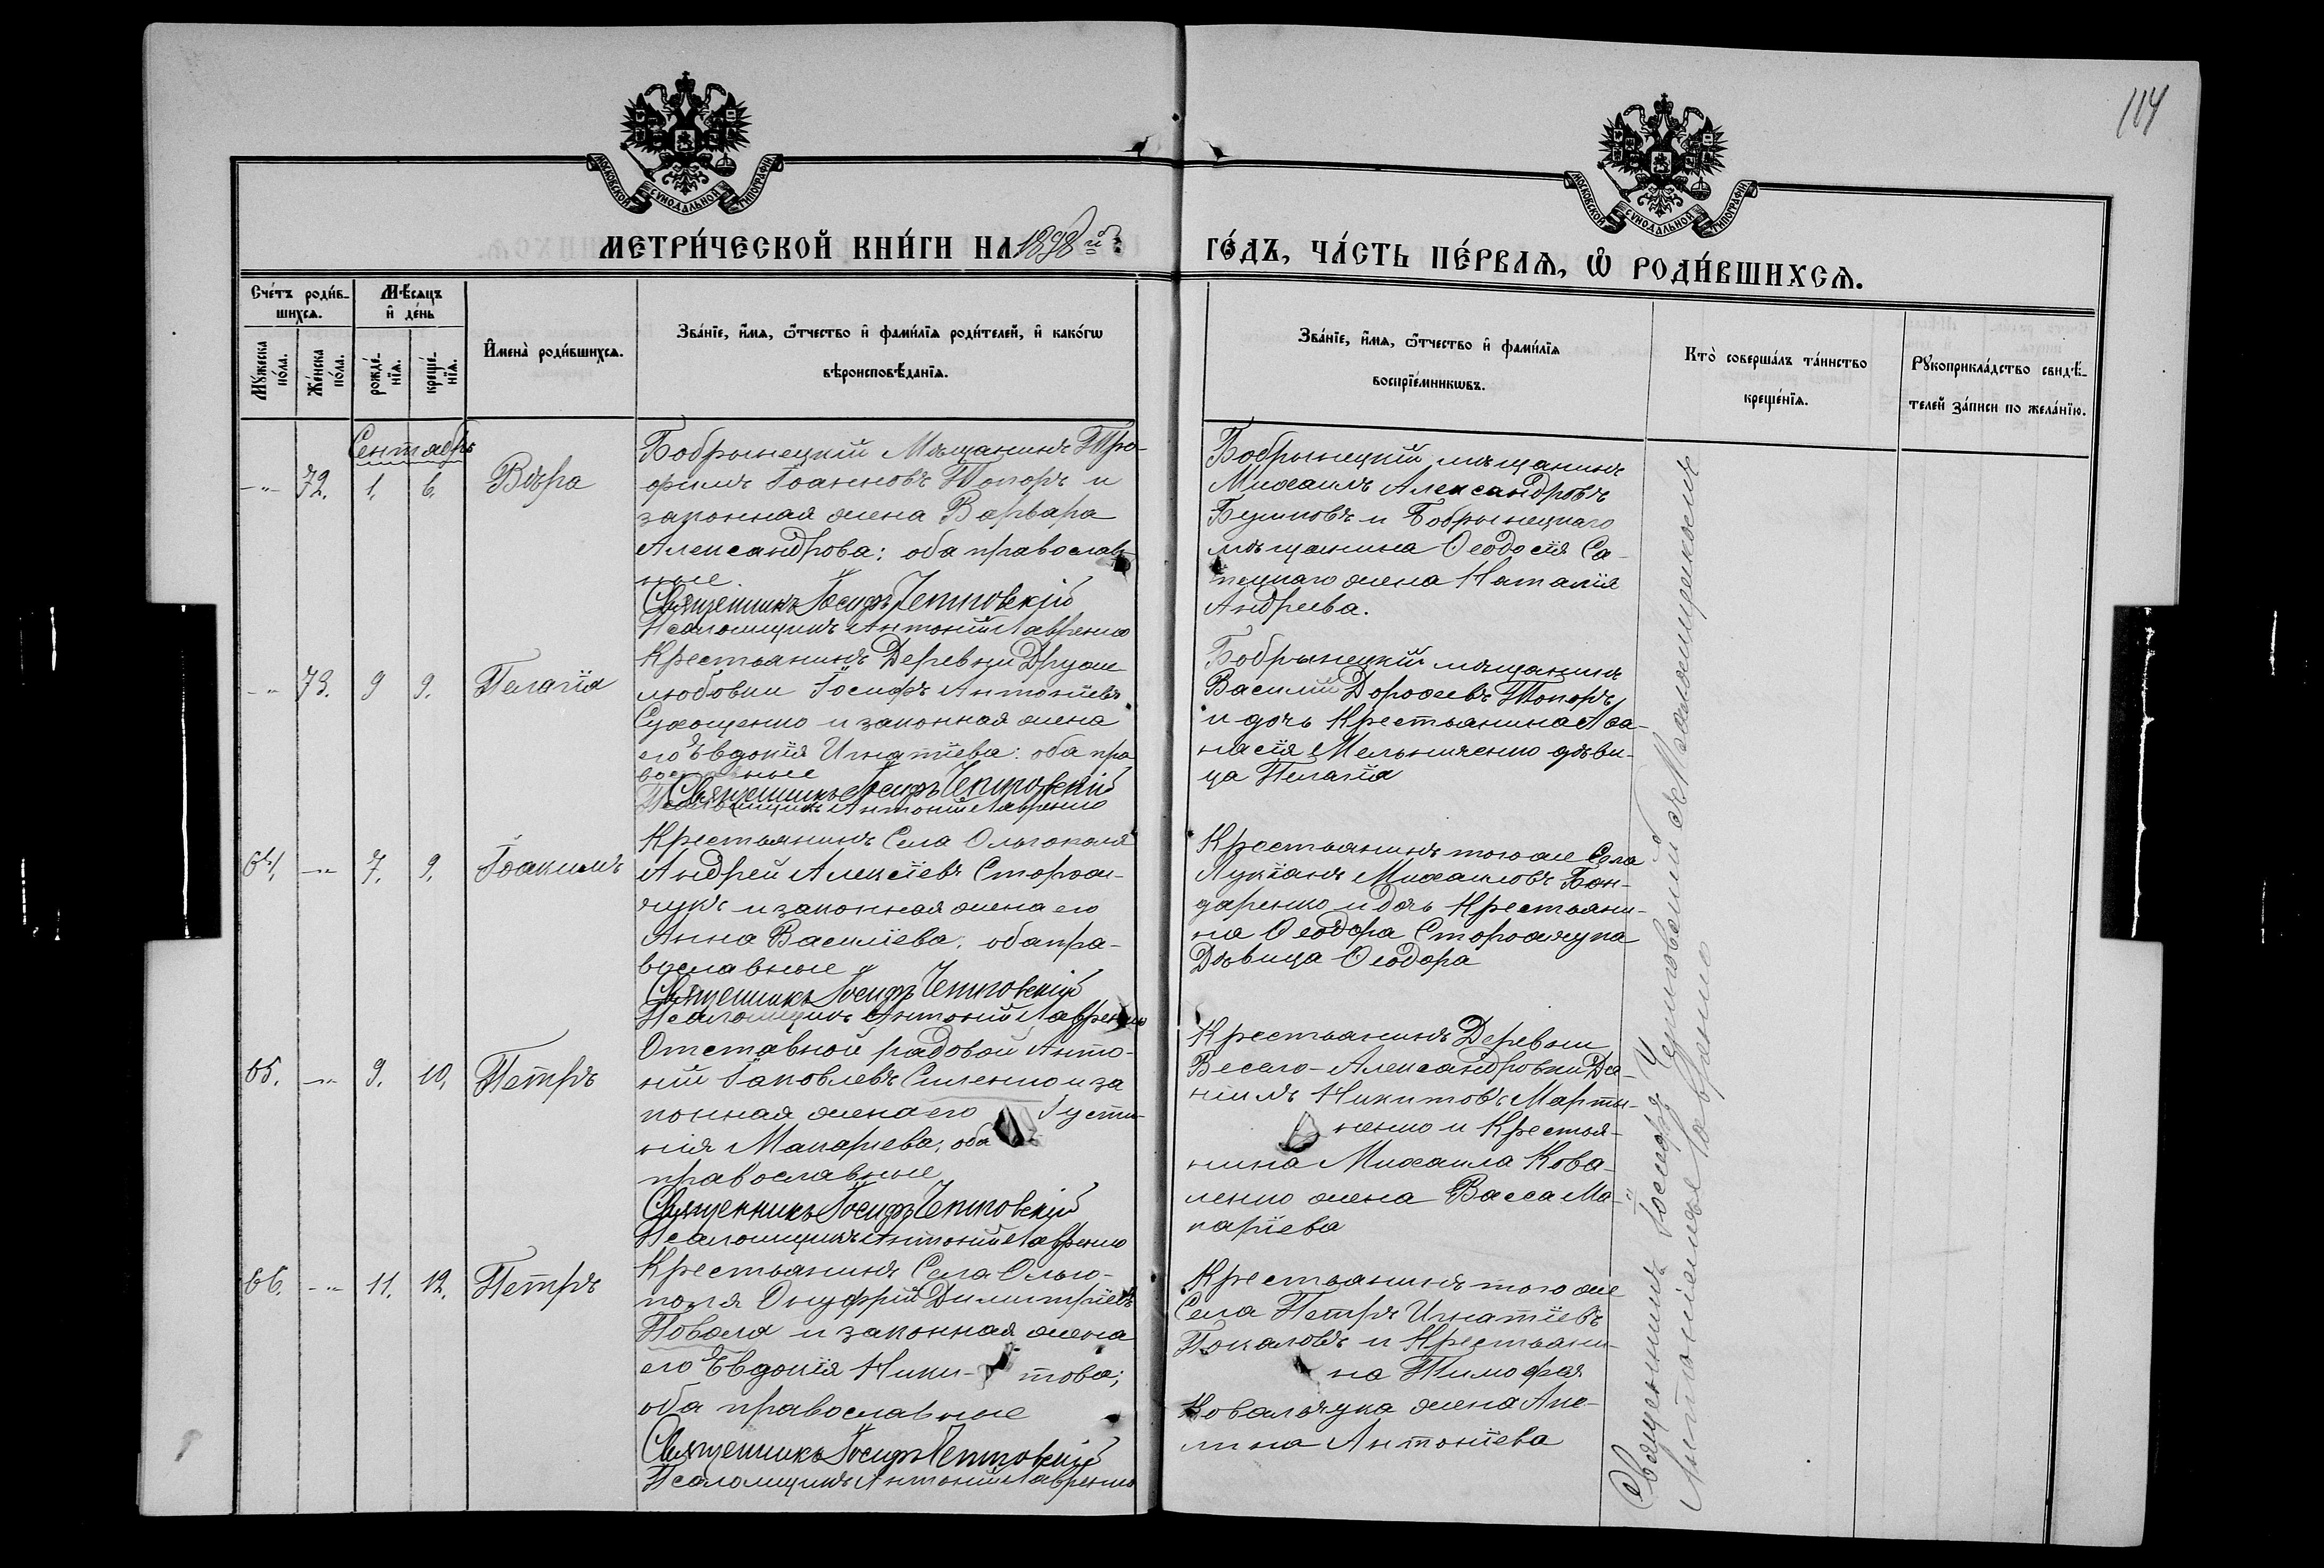 114
МОСКОВСКОЙ СѴНОДАЛЬНОЙ ТИПОГРАФІИ
МОСКОВСКОЙ СѴНОДАЛЬНОЙ ТИПОГРАФІИ
МЕТРИ́ЧЕСКОЙ КНИ́ГИ НА 1898й
ГО́ДЪ, ЧА́СТЬ ПЕ́РВАѦ, Ѽ РОДИ́ВШИХСѦ.
Сче́тъ роди́в-
шихсѧ.
Мѣ́сѧцъ
и҆ де́нь
Му́жеска по́ла.
Же́нска по́ла.
рожде́-нїѧ.
креще́-нїѧ.
И҆мена̀ роди́вшихсѧ.
Зва́нїе, и҆́мѧ, ѻ҆́тчество и҆ фами́лїѧ роди́телей, и҆ како́гѡ
вѣроисповѣ́данїѧ.
Зва́нїе, и҆́мѧ, ѻ҆́тчество и҆ фами́лїѧ
воспрїе́мникѡвъ.
Кто̀ соверша́лъ та́инство
креще́нїѧ.
Рꙋкоприкла́дство свидѣ́-
телей за́писи по жела́нїю.
Сентябрь
-"- 72. 1. 6. Вѣра
Бобрынецкій Мѣщанинъ Тро-
фимъ Іоанновъ Топоръ и
законная жена Варвара
Александрова: оба православ-
ные.
Священникъ Іосифъ
Псаломщикъ Антоній Лавренко
Бобрынецкій мѣщанинъ
Михаилъ Александровъ
и Бобрынецкаго
мѣщанина Ѳеодосія Са-
жена Наталія
Андреева.
-"- 73. 9 9. Пелагія
Крестьянинъ Деревни Друже
любовки Іосифъ Антоніевъ
Сухощенко и законная жена
его Евдокія Игнатіева: оба пра
вославные
Священникъ Іосифъ
Псаломщикъ Антоній Лавренко
Бобрынецкій мѣщанинъ
Василій Дороѳеевъ Топоръ
и дочь Крестьянина Аѳа-
насія Мельниченко дѣви-
ца Пелагія
64. -"- 7. 9. Іоакимъ
Крестьянинъ Села Ольгополя
Андрей Алексіевъ Сторож-
чукъ и законная жена его
Анна Василіева: оба пра-
вославные
Священникъ Іосифъ
Псаломщикъ Антоній Лавренко
Крестьянинъ того же Села
Лукіанъ Михаиловъ Бон-
даренко и дочь Крестьяни-
на Ѳеодора Сторожчука
Дѣвица Ѳеодора
65. -"- 9. 10. Петръ
Отставной рядовой Анто-
ній Іаковлевъ и за
конная жена его Густи-
нія Макаріева, оба
православные
Священникъ Іосифъ
Псаломщикъ Антоній Лавренко
Крестьянинъ Деревни
Весело-Александровки Да-
ніилъ Никитовъ Марты-
ненко и Крестья-
нина Михаила Кова-
ленко жена Васса Ма-
каріева
66. -"- 11. 12. Петръ
Крестьянинъ Села Ольго-
поля Онуфрій Димитріевъ
Повала и законная жена
его Евдокія Ники- това;
оба православные
Священникъ Іосифъ
Псаломщикъ Антоній Лавренко
Крестьянинъ того же
Села Петръ Игнатіевъ
и Крестьяни-
на Тимофея
Ковальчука жена
Антоніева
Священникъ Іосифъ съ Псаломщикомъ
Антоніемъ Лавренко